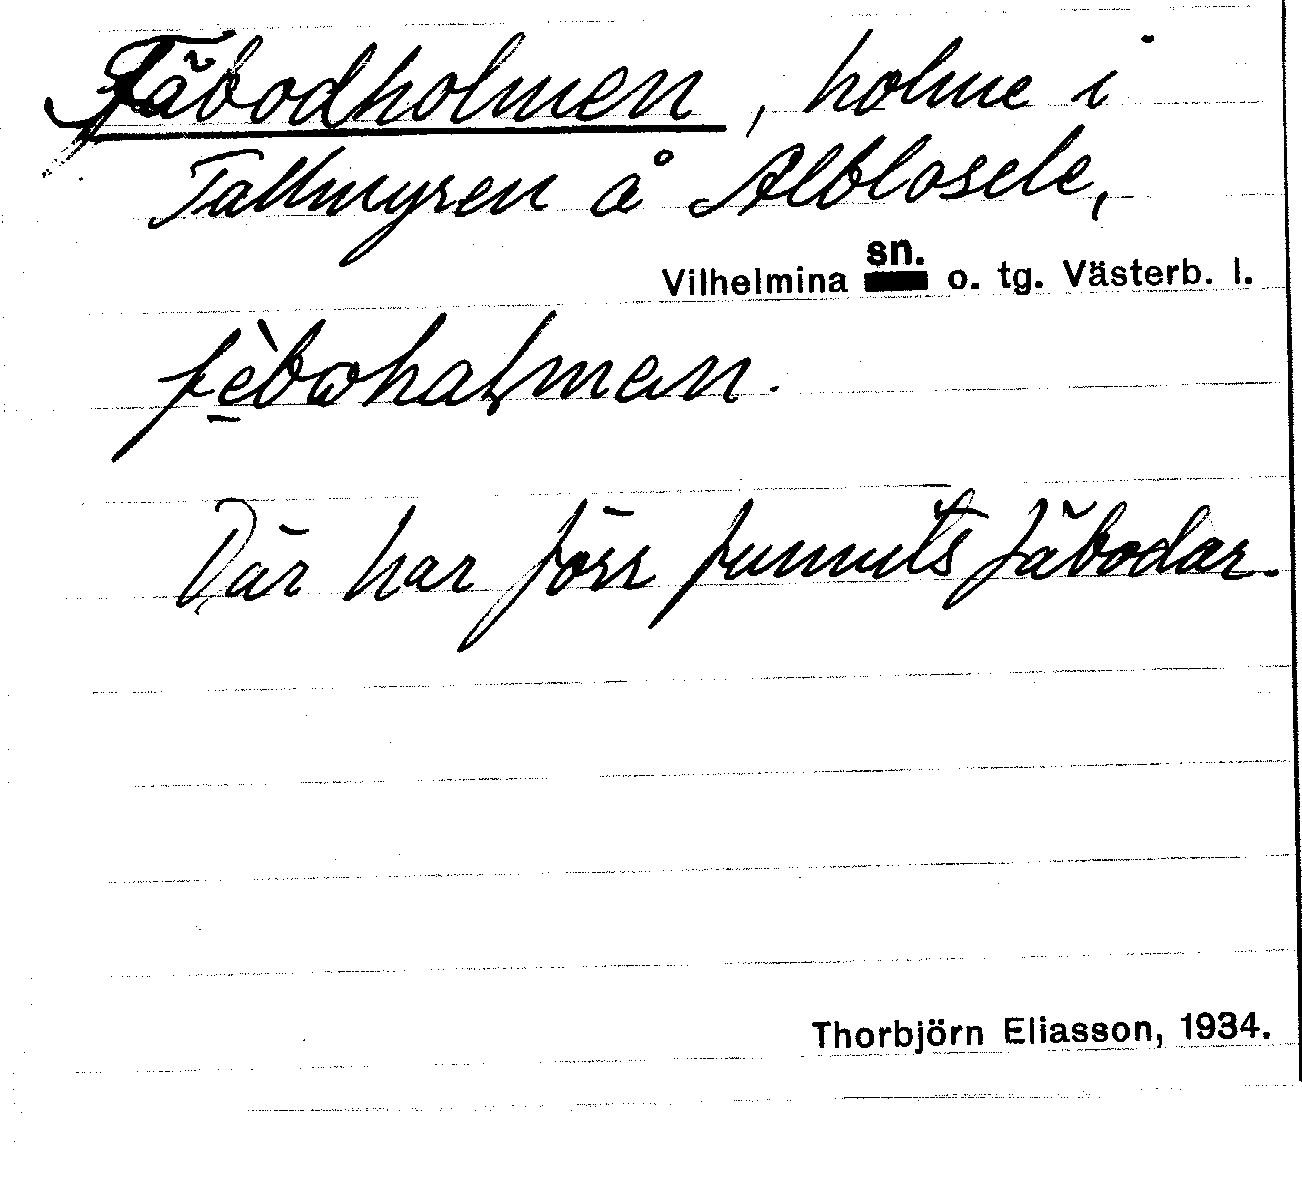 Fäbodholmen, holme i
Tallmyren å Alblosele,
sn.
Vilhelmina o. tg. Västerb. l.
Där har förr funnits fäbodar.
Thorbjörn Eliasson, 1934.